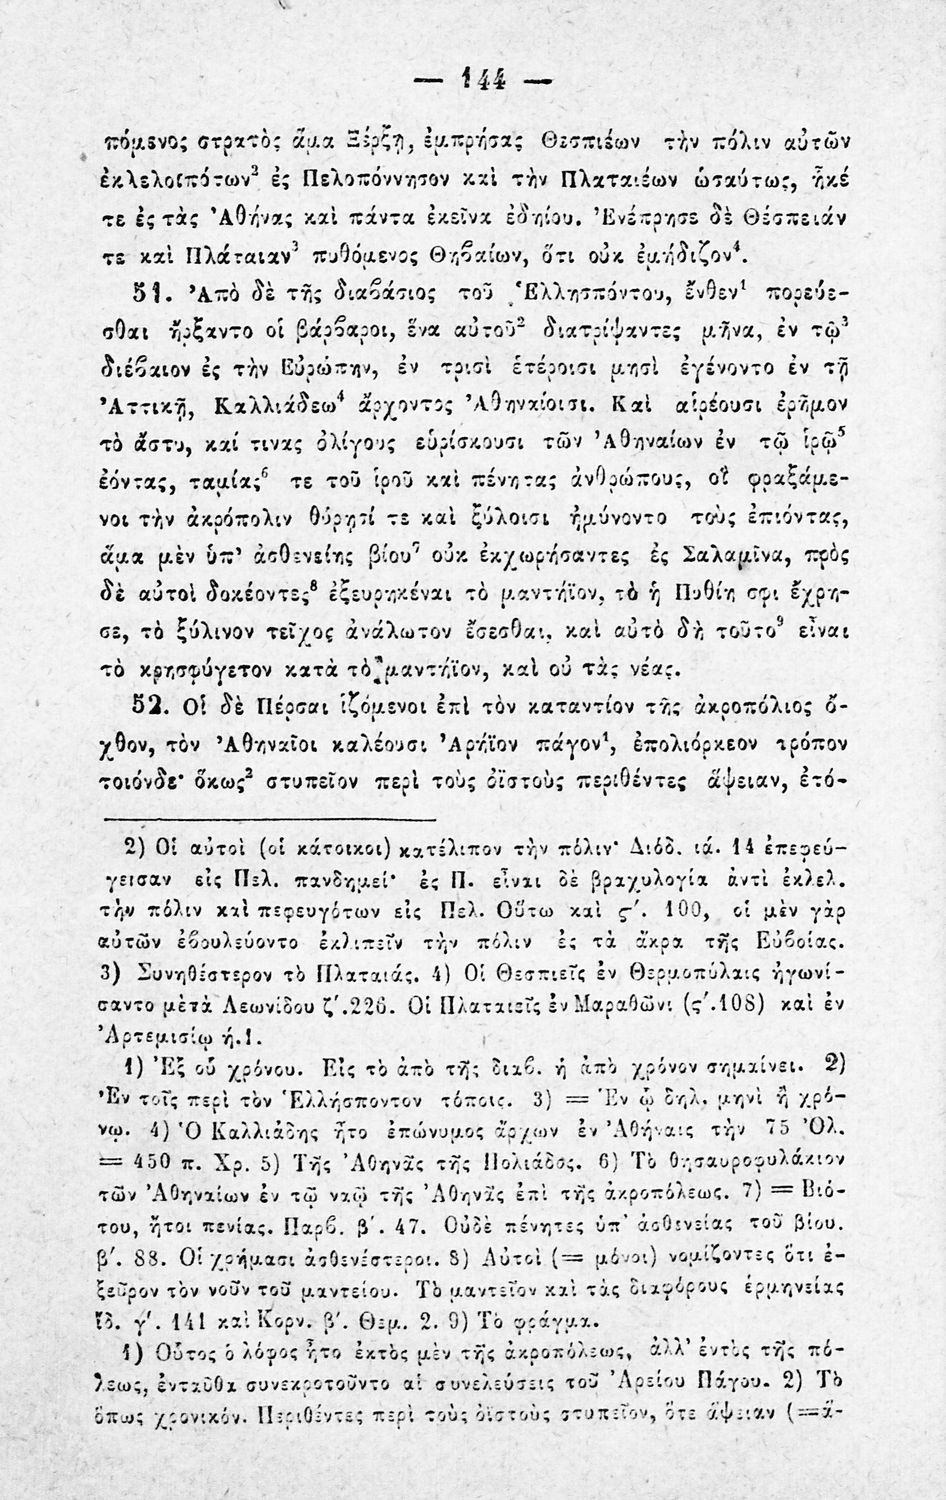 — 144 —
πόμενος στρατὸς ἅμα Ξέρξῃ, ἐμπρήσας Θεσπιέων τὴν πόλιν αὐτῶν
ἐκλελοιπότων² ἐς Πελοπόννησον καὶ τὴν Πλαταιέων ὡσαύτως, ἧκέ
τε ἐς τὰς Ἀθήνας καὶ πάντα ἐκεῖνα ἐδηίου. Ἐνέπρησε δὲ Θέσπειάν
τε καὶ Πλάταιαν³ πυθόμενος Θηβαίων, ὅτι οὐκ ἐμήδιζον⁴.
51. Ἀπὸ δὲ τῆς διαβάσιος τοῦ Ἑλλησπόντου, ἔνθεν¹ πορεύε-
σθαι ἤρξαντο οἱ βάρβαροι, ἕνα αὐτοῦ² διατρίψαντες μῆνα, ἐν τῷ³
διέβαιον ἐς τὴν Εὐρώπην, ἐν τρισὶ ἑτέροισι μησὶ ἐγένοντο ἐν τῇ
Ἀττικῇ, Καλλιάδεω⁴ ἄρχοντος Ἀθηναίοισι. Καὶ αἱρέουσι ἐρῆμον
τὸ ἄστυ, καί τινας ὀλίγους εὑρίσκουσι τῶν Ἀθηναίων ἐν τῷ ἱρῷ⁵
ἐόντας, ταμίας⁶ τε τοῦ ἱροῦ καὶ πένητας ἀνθρώπους, οἳ φραξάμε-
νοι τὴν ἀκρόπολιν θύρῃσί τε καὶ ξύλοισι ἠμύνοντο τοὺς ἐπιόντας,
ἅμα μὲν ὑπ' ἀσθενείης βίου⁷ οὐκ ἐκχωρήσαντες ἐς Σαλαμῖνα, πρὸς
δὲ αὐτοὶ δοκέοντες⁸ ἐξευρηκέναι τὸ μαντήϊον, τὸ ἡ Πυθίη σφι ἔχρη-
σε, τὸ ξύλινον τεῖχος ἀνάλωτον ἔσεσθαι, καὶ αὐτὸ δὴ τοῦτο⁹ εἶναι
τὸ κρησφύγετον κατὰ τὸ μαντήϊον, καὶ οὐ τὰς νέας.
52. Οἱ δὲ Πέρσαι ἱζόμενοι ἐπὶ τὸν καταντίον τῆς ἀκροπόλιος ὄ-
χθον, τὸν Ἀθηναῖοι καλέουσι Ἀρήϊον πάγον¹, ἐπολιόρκεον τρόπον
τοιόνδε· ὅκως² στυπεῖον περὶ τοὺς ὀϊστοὺς περιθέντες ἅψειαν, ἐτό-
2) Οἱ αὐτοὶ (οἱ κάτοικοι) κατέλιπον τὴν πόλιν· Διόδ. ιά. 14 ἐπεφεύ-
γεισαν εἰς Πελ. πανδημεί· ἐς Π. εἶναι δὲ βραχυλογία ἀντὶ ἐκλελ.
τὴν πόλιν καὶ πεφευγότων εἰς Πελ. Οὕτω καὶ ς'. 100, οἱ μὲν γὰρ
αὐτῶν ἐβουλεύοντο ἐκλιπεῖν τὴν πόλιν ἐς τὰ ἄκρα τῆς Εὐβοίας.
3) Συνηθέστερον τὸ Πλαταιάς. 4) Οἱ Θεσπιεῖς ἐν Θερμοπύλαις ἠγωνί-
σαντο μὲτὰ Λεωνίδου ζ'.226. Οἱ Πλαταιεῖς ἐν Μαραθῶνι (ς'.108) καὶ ἐν
Ἀρτεμισίῳ ή.1.
1) Ἐξ οὗ χρόνου. Εἰς τὸ ἀπὸ τῆς διαβ. ἡ ἀπὸ χρόνον σημαίνει. 2)
Ἐν τοῖς περὶ τὸν Ἑλλήσποντον τόποις. 3) = Ἐν ᾧ δηλ. μηνὶ ἢ χρό-
νῳ. 4) Ὁ Καλλιάδης ἦτο ἐπώνυμος ἄρχων ἐν Ἀθήναις τὴν 75 Ὀλ.
= 450 π. Χρ. 5) Τῆς Ἀθηνᾶς τῆς Πολιάδος. 6) Τὸ θησαυροφυλάκιον
τῶν Ἀθηναίων ἐν τῷ ναῷ τῆς Ἀθηνᾶς ἐπὶ τῆς ἀκροπόλεως. 7) = Βιό-
του, ἤτοι πενίας. Παρβ. β'. 47. Οὐδὲ πένητες ὑπ' ἀσθενείας τοῦ βίου.
β'. 88. Οἱ χρήμασι ἀσθενέστεροι. 8) Αὐτοὶ (= μόνοι) νομίζοντες ὅτι ἐ-
ξεῦρον τὸν νοῦν τοῦ μαντείου. Τὸ μαντεῖον καὶ τὰς διαφόρους ἑρμηνείας
ἴδ. γ'. 141 καὶ Κορν. β'. Θεμ. 2. 9) Τὸ φράγμα.
1) Οὗτος ὁ λόφος ἦτο ἐκτὸς μὲν τῆς ἀκροπόλεως, ἀλλ' ἐντὸς τῆς πό-
λεως, ἐνταῦθα συνεκροτοῦντο αἱ συνελεύσεις τοῦ Ἀρείου Πάγου. 2) Τὸ
ὅπως χρονικόν. Περιθέντες περὶ τοὺς ὀϊστοὺς στυπεῖον, ὅτε ἅψειαν (=ἄ-